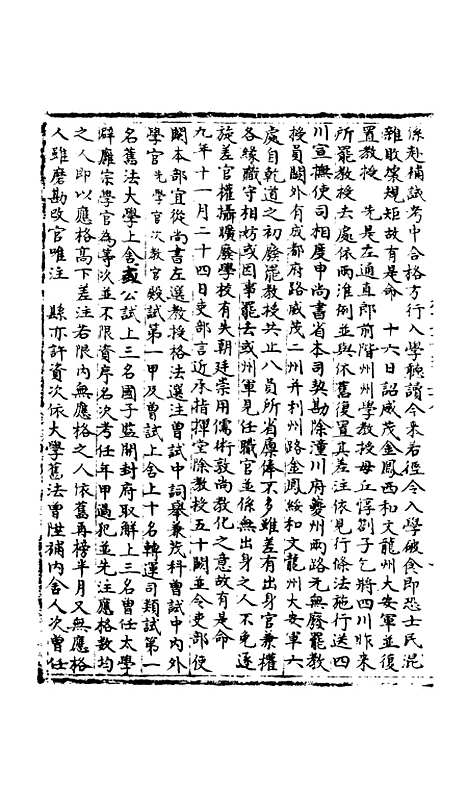 係赴補試考中合格方行入學聽讀今来若徑令入學破食即恐士民混
雜敗壞規矩故有是命　十六日詔威茂金鳳西和文龍州大安軍並復
置教授　先是左通直郎前階州州學教授毋丘惇劄子乞將四川昨来
所罷教授去處依兩淮例並與依舊復置其差注依見行條法施行送四
川宣撫使司相度申尚書省本司契勘除潼川府夔州兩路元無廢罷教
授員闕外有成都府路威茂二州并利州路金鳳綏和文龍州大安軍六
處自乾道之初廢罷教授共止八員所省廩俸不多雖差有出身官兼權
各緣職守相妨或因事罷去或州軍見任職官並係無出身之人不免逐
旋差官權攝曠廢學校有失朝廷崇用儒術敦尚教化之意故有是命
九年十一月二十四日吏部言近承指揮堂除教授五十闕並令吏部使
闕本部宜從尚書左選教授格法選注曾試中詞學兼茂科曾試中内外
學官先學官次教官殿試第一甲及曾試上舍上十名轉運司類試第一
名舊法大學上舍或公試上三名國子監開封府取解上三名曾任太學
辟廱宗學官為等以並不限資序名次考任年甲過犯並先注應格數均
之人即以應格高下差注若限内無應格之人依舊再榜半月又無應格
人雖磨勘改官唯注　縣亦許資次依大學舊法曾陞補内舍人次曾任